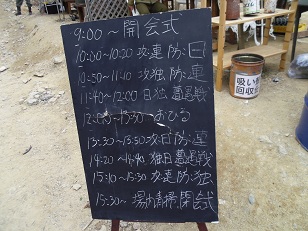 9:00～開会式
10:00～10:20 攻:連 防:日
10:50～11:10 攻:独 防:連
11:40～12:00 日独 遭遇戦
12:00～13:30 おひる
13:30～13:50 攻:日 防:連
14:20～14:40 独日 遭遇戦
15:10～15:30 攻:連 防:独
15:30～ 場内清掃 閉会式
吸い殻
回収